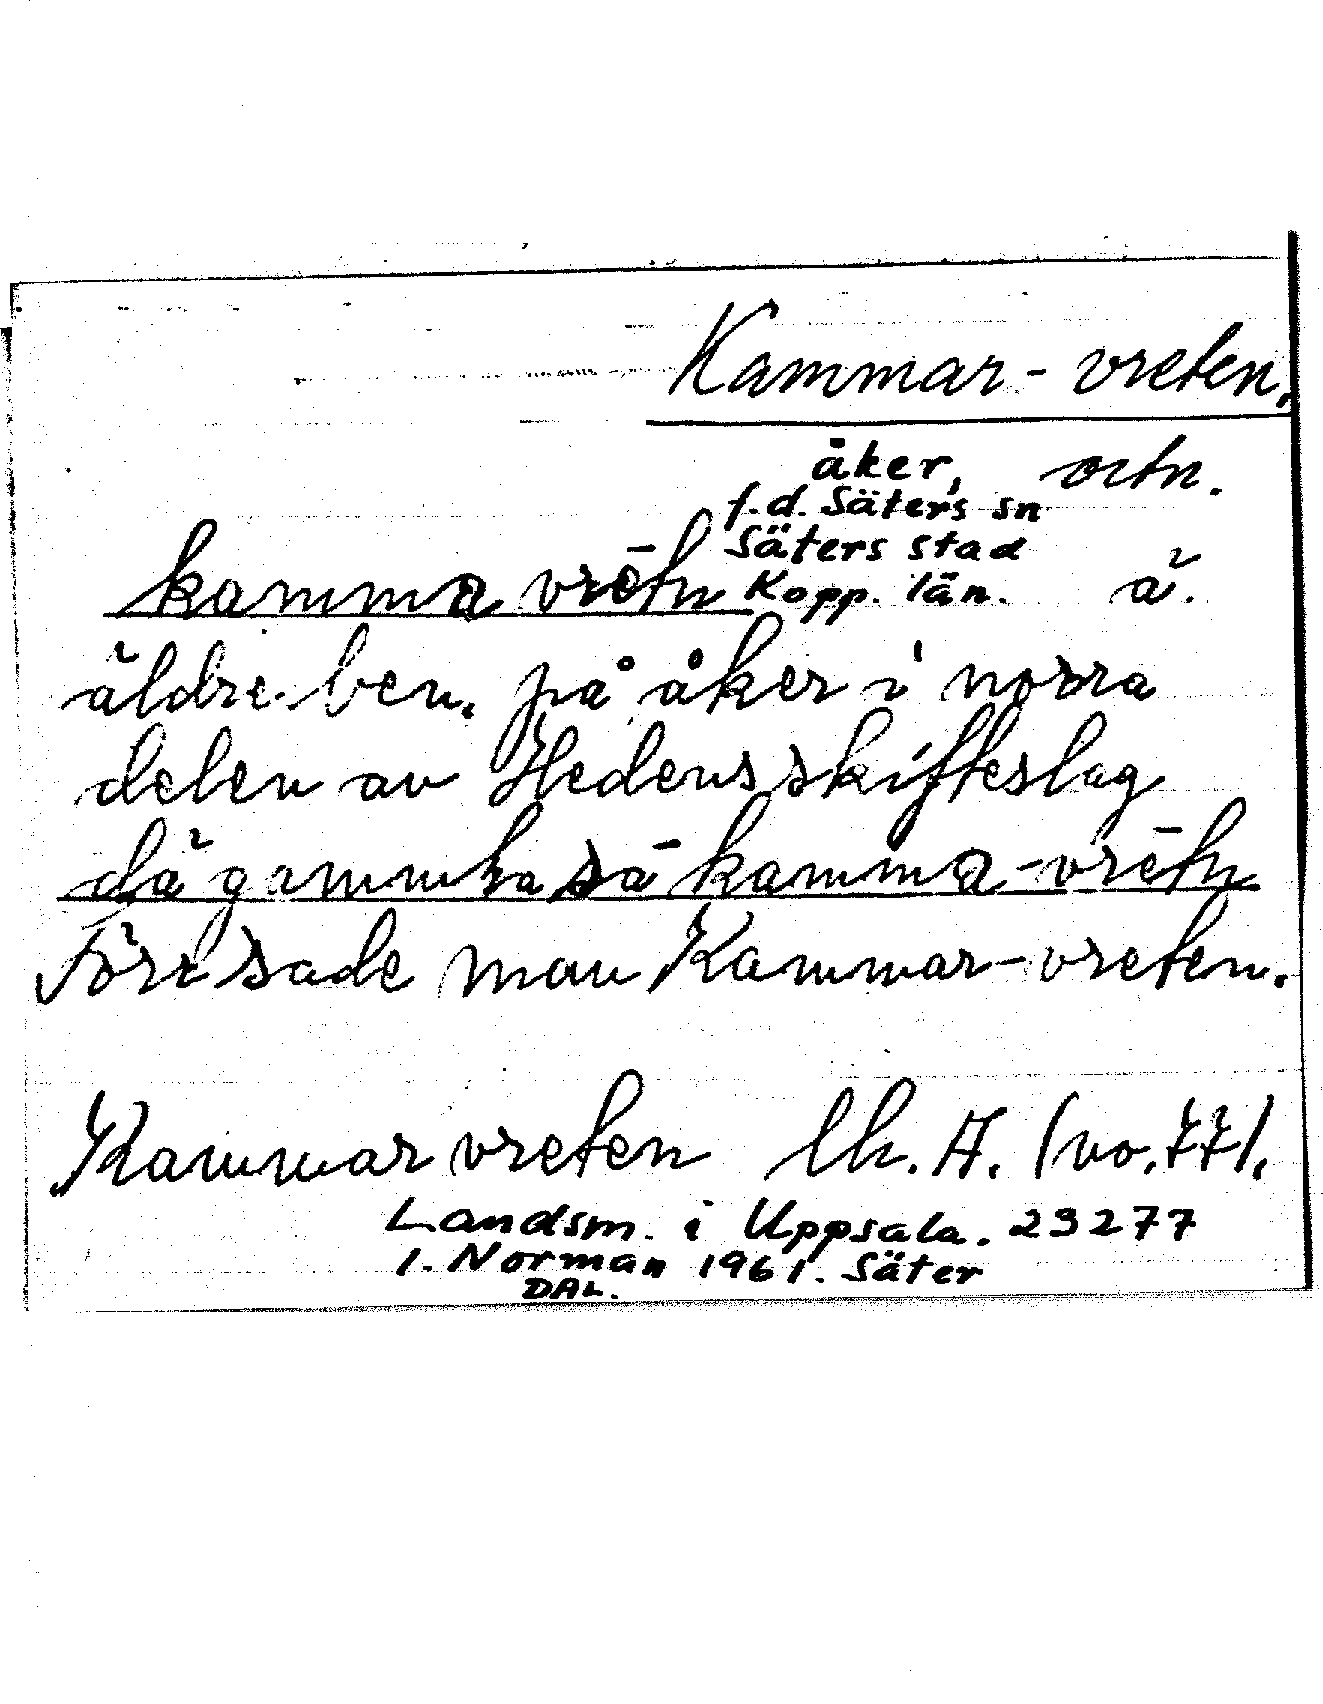 Kammar-vreten.
åker, ortn.
f.d. Säters sn
Säters stad
kamma vrētn Kopp. län. ä.
äldre ben. på åker i norra
delen av Hedens skifteslag
dä gammla sā kamma-vrētn
Förr sade man Kammar-vreten.
Kammar vreten lh. A. (no. 77).
Landsm. i Uppsala. 23277
I. Norman 1961. Säter
DAL.